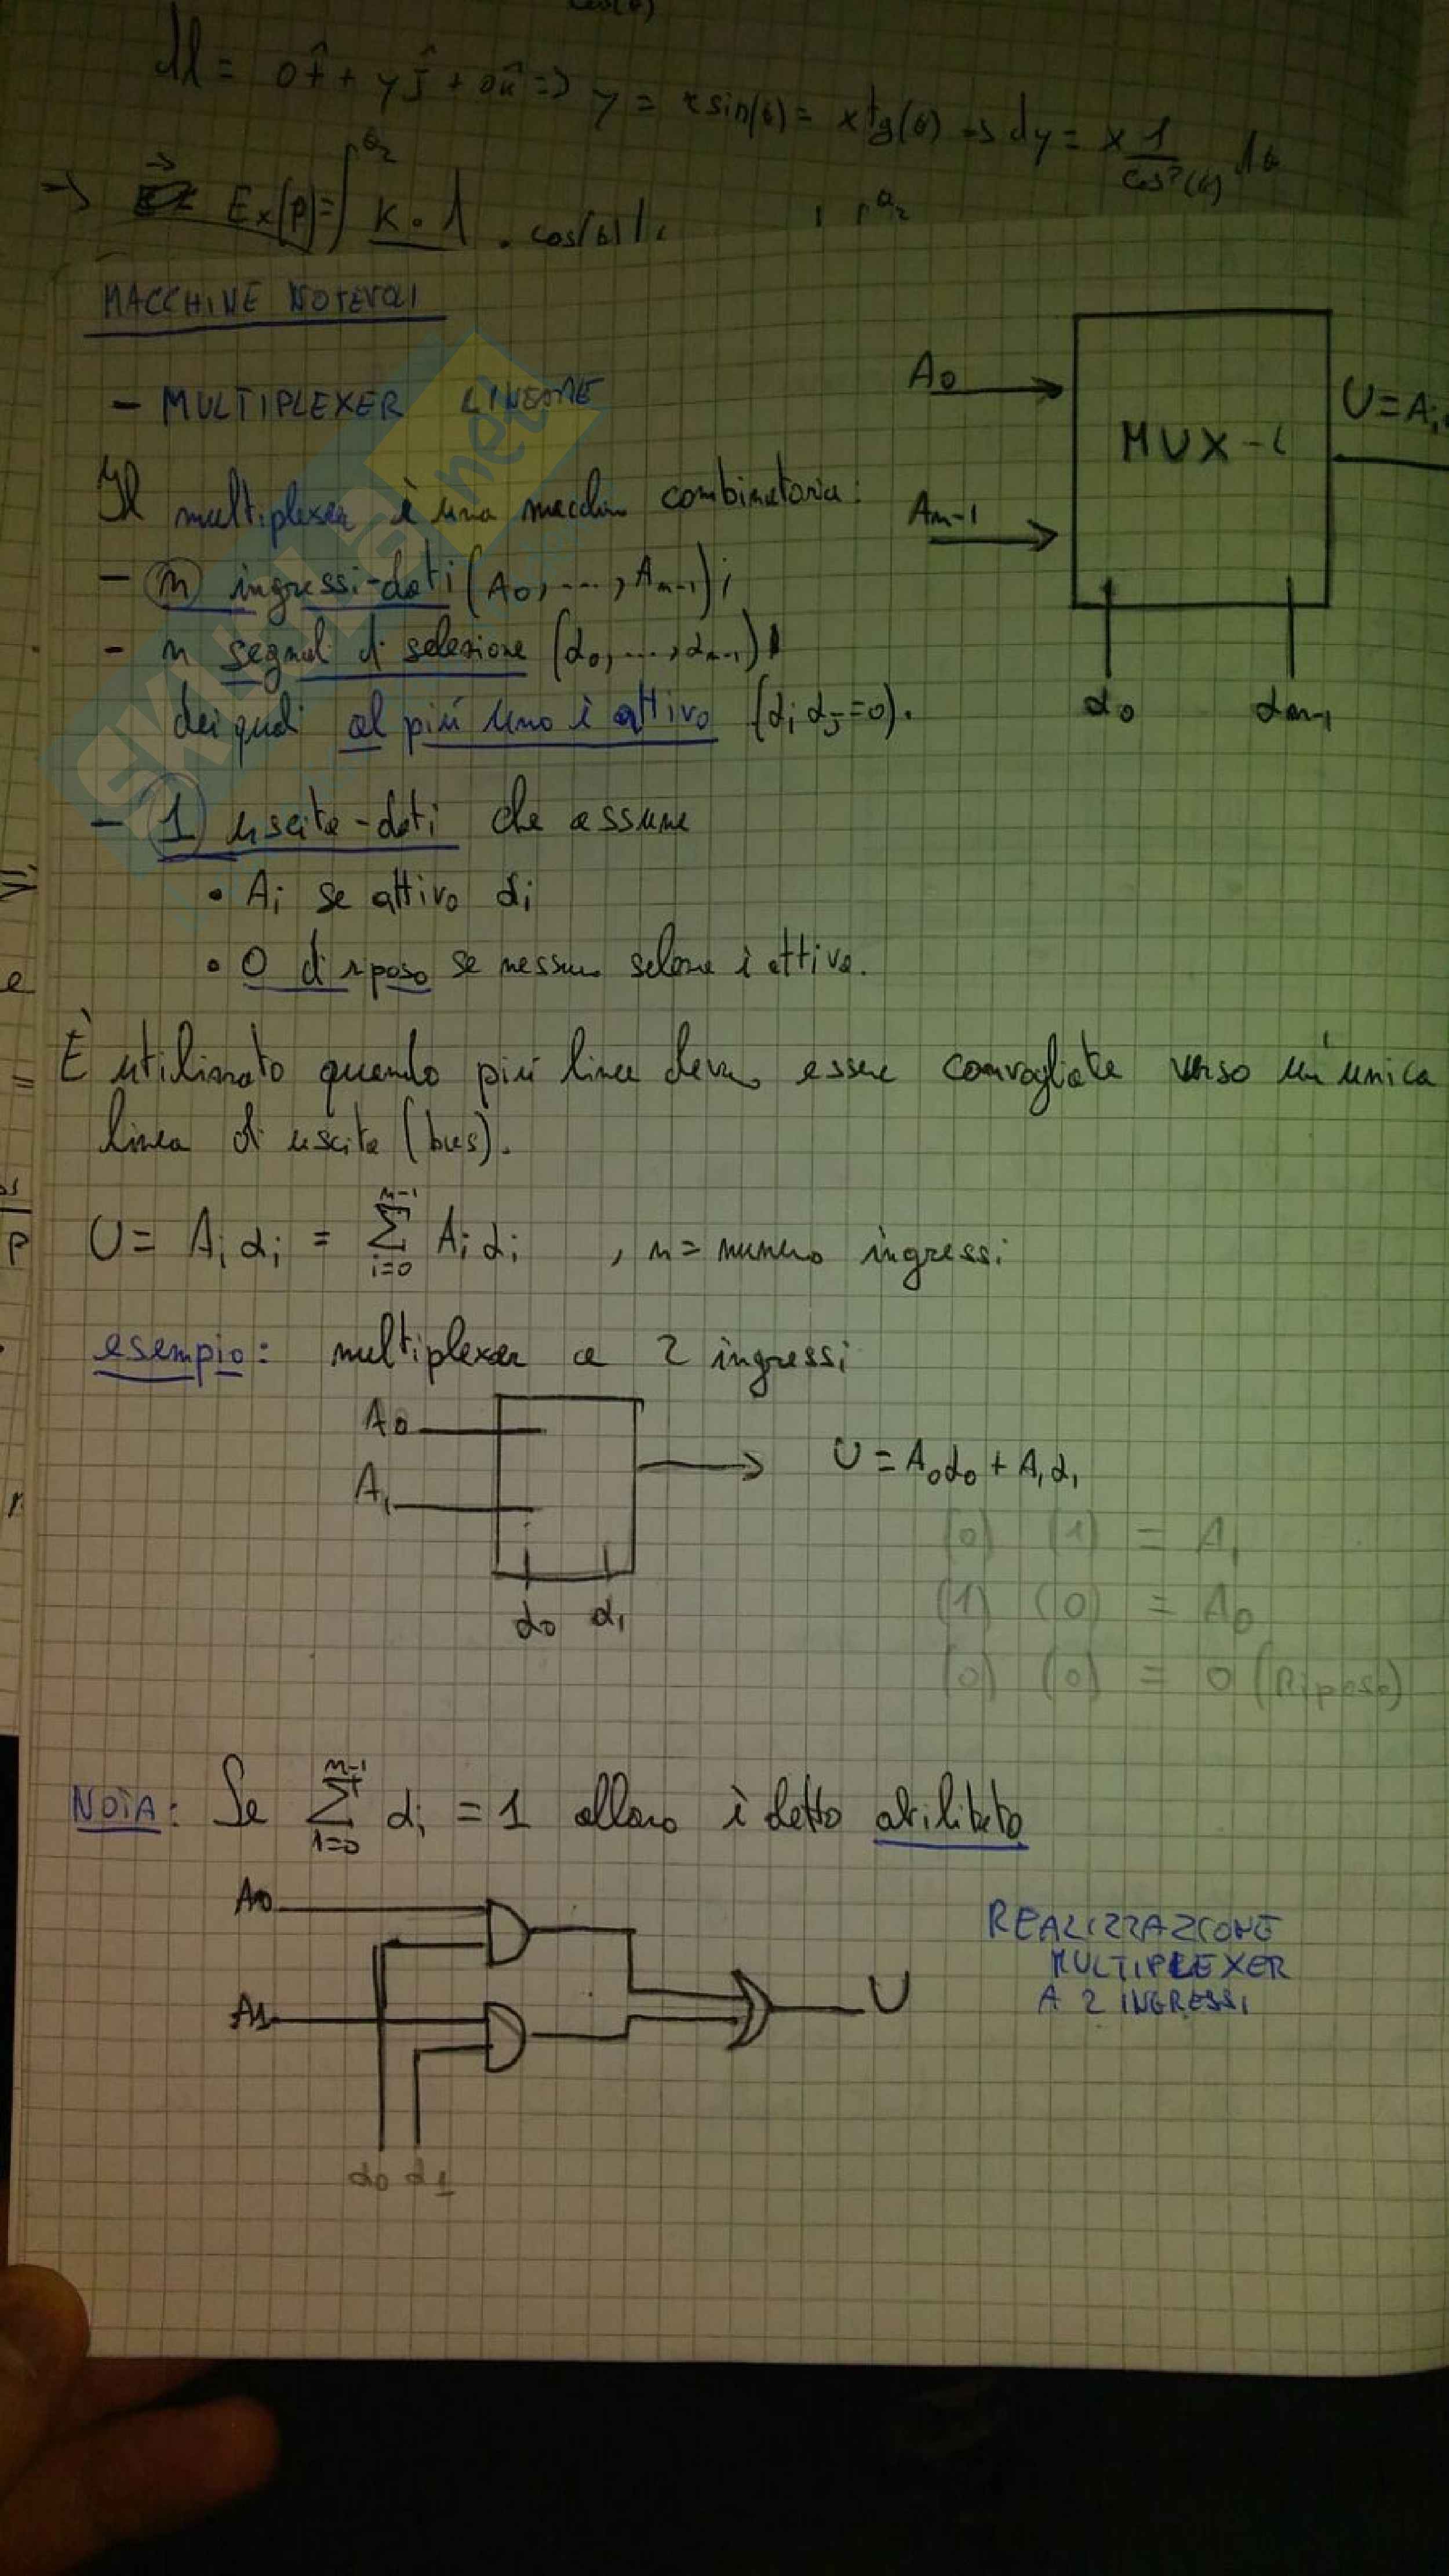 dl = 0î + yĵ + 0k̂ => y = r sin(θ) = x tg(θ) => dy = x 1/cos²(θ) dθ
=> Ex(p) = ∫ K · λ · cos(θ)
MACCHINE NOTEVOLI
- MULTIPLEXER LINEARE
Il multiplexer è una macchina combinatoria:
- n ingressi-dati (A0, ..., An-1);
- n segnali di selezione (α0, ..., αn-1)
dei quali al più uno è attivo (αi αj = 0).
- 1 uscita-dati che assume
• Ai se attivo αi
• 0 di riposo se nessun selone è attivo.
A0
An-1
MUX-L
U = Ai
α0 αn-1
È utilizzato quando più linee devono essere convogliate verso un'unica
linea di uscita (bus).
U = Ai αi = Σ i=0 n-1 Ai αi , n = numero ingressi
esempio: multiplexer a 2 ingressi
A0
A1
α0 α1
U = A0α0 + A1α1
(0) (1) = A1
(1) (0) = A0
(0) (0) = 0 (Riposo)
NOTA: Se Σ i=0 n-1 αi = 1 allora è detto abilitato
A0
A1
α0 α1
U
REALIZZAZIONE
MULTIPLEXER
A 2 INGRESSI
SKUOLA.net